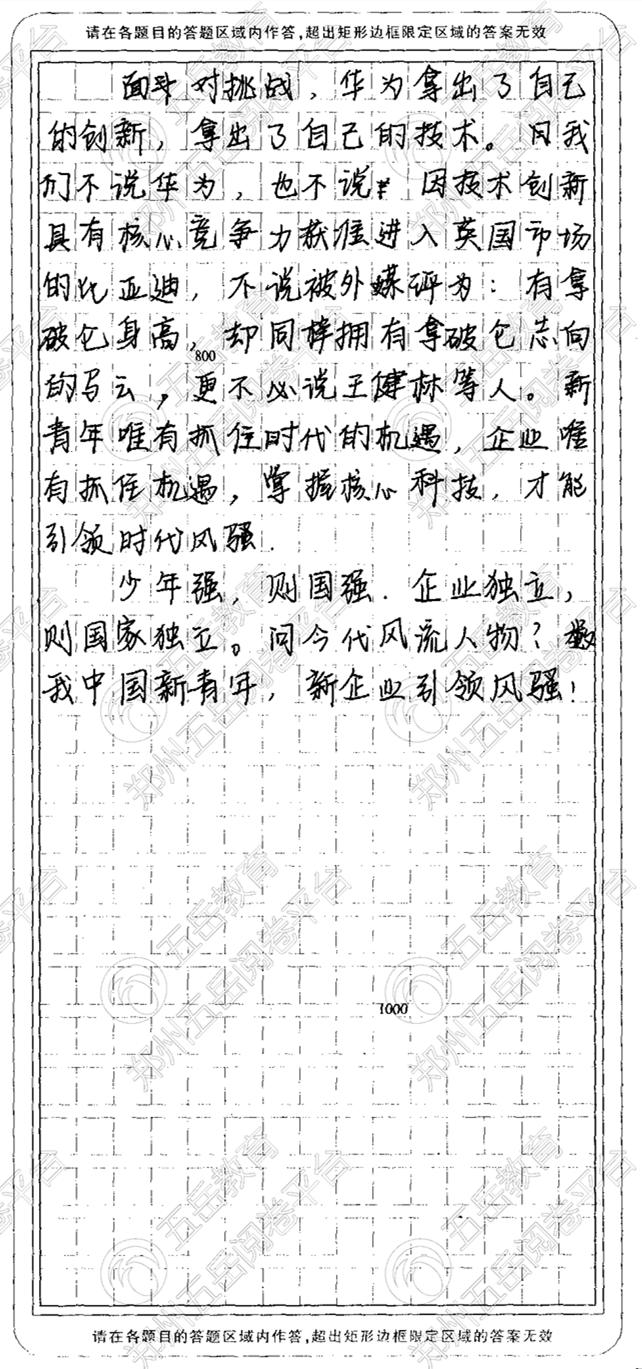 请在各题目的答题区域内作答,超出矩形边框限定区域的答案无效
面对挑战，华为拿出了自己
的创新，拿出了自己的技术。日我
们不说华为，也不说因技术创新
具有核心竞争力获准进入英国市场
的比亚迪，不说被外媒评为：有拿
破仑身高，却同样拥有拿破仑志向
800
的马云，更不必说王健林等人。新
青年唯有抓住时代的机遇，企业唯
有抓住机遇，掌握核心科技，才能
引领时代风骚.
少年强，则国强.企业独立，
则国家独立。问今代风流人物？数
我中国新青年，新企业引领风骚！
1000
请在各题目的答题区域内作答,超出矩形边框限定区域的答案无效
五岳教育
郑州五岳阅卷平台